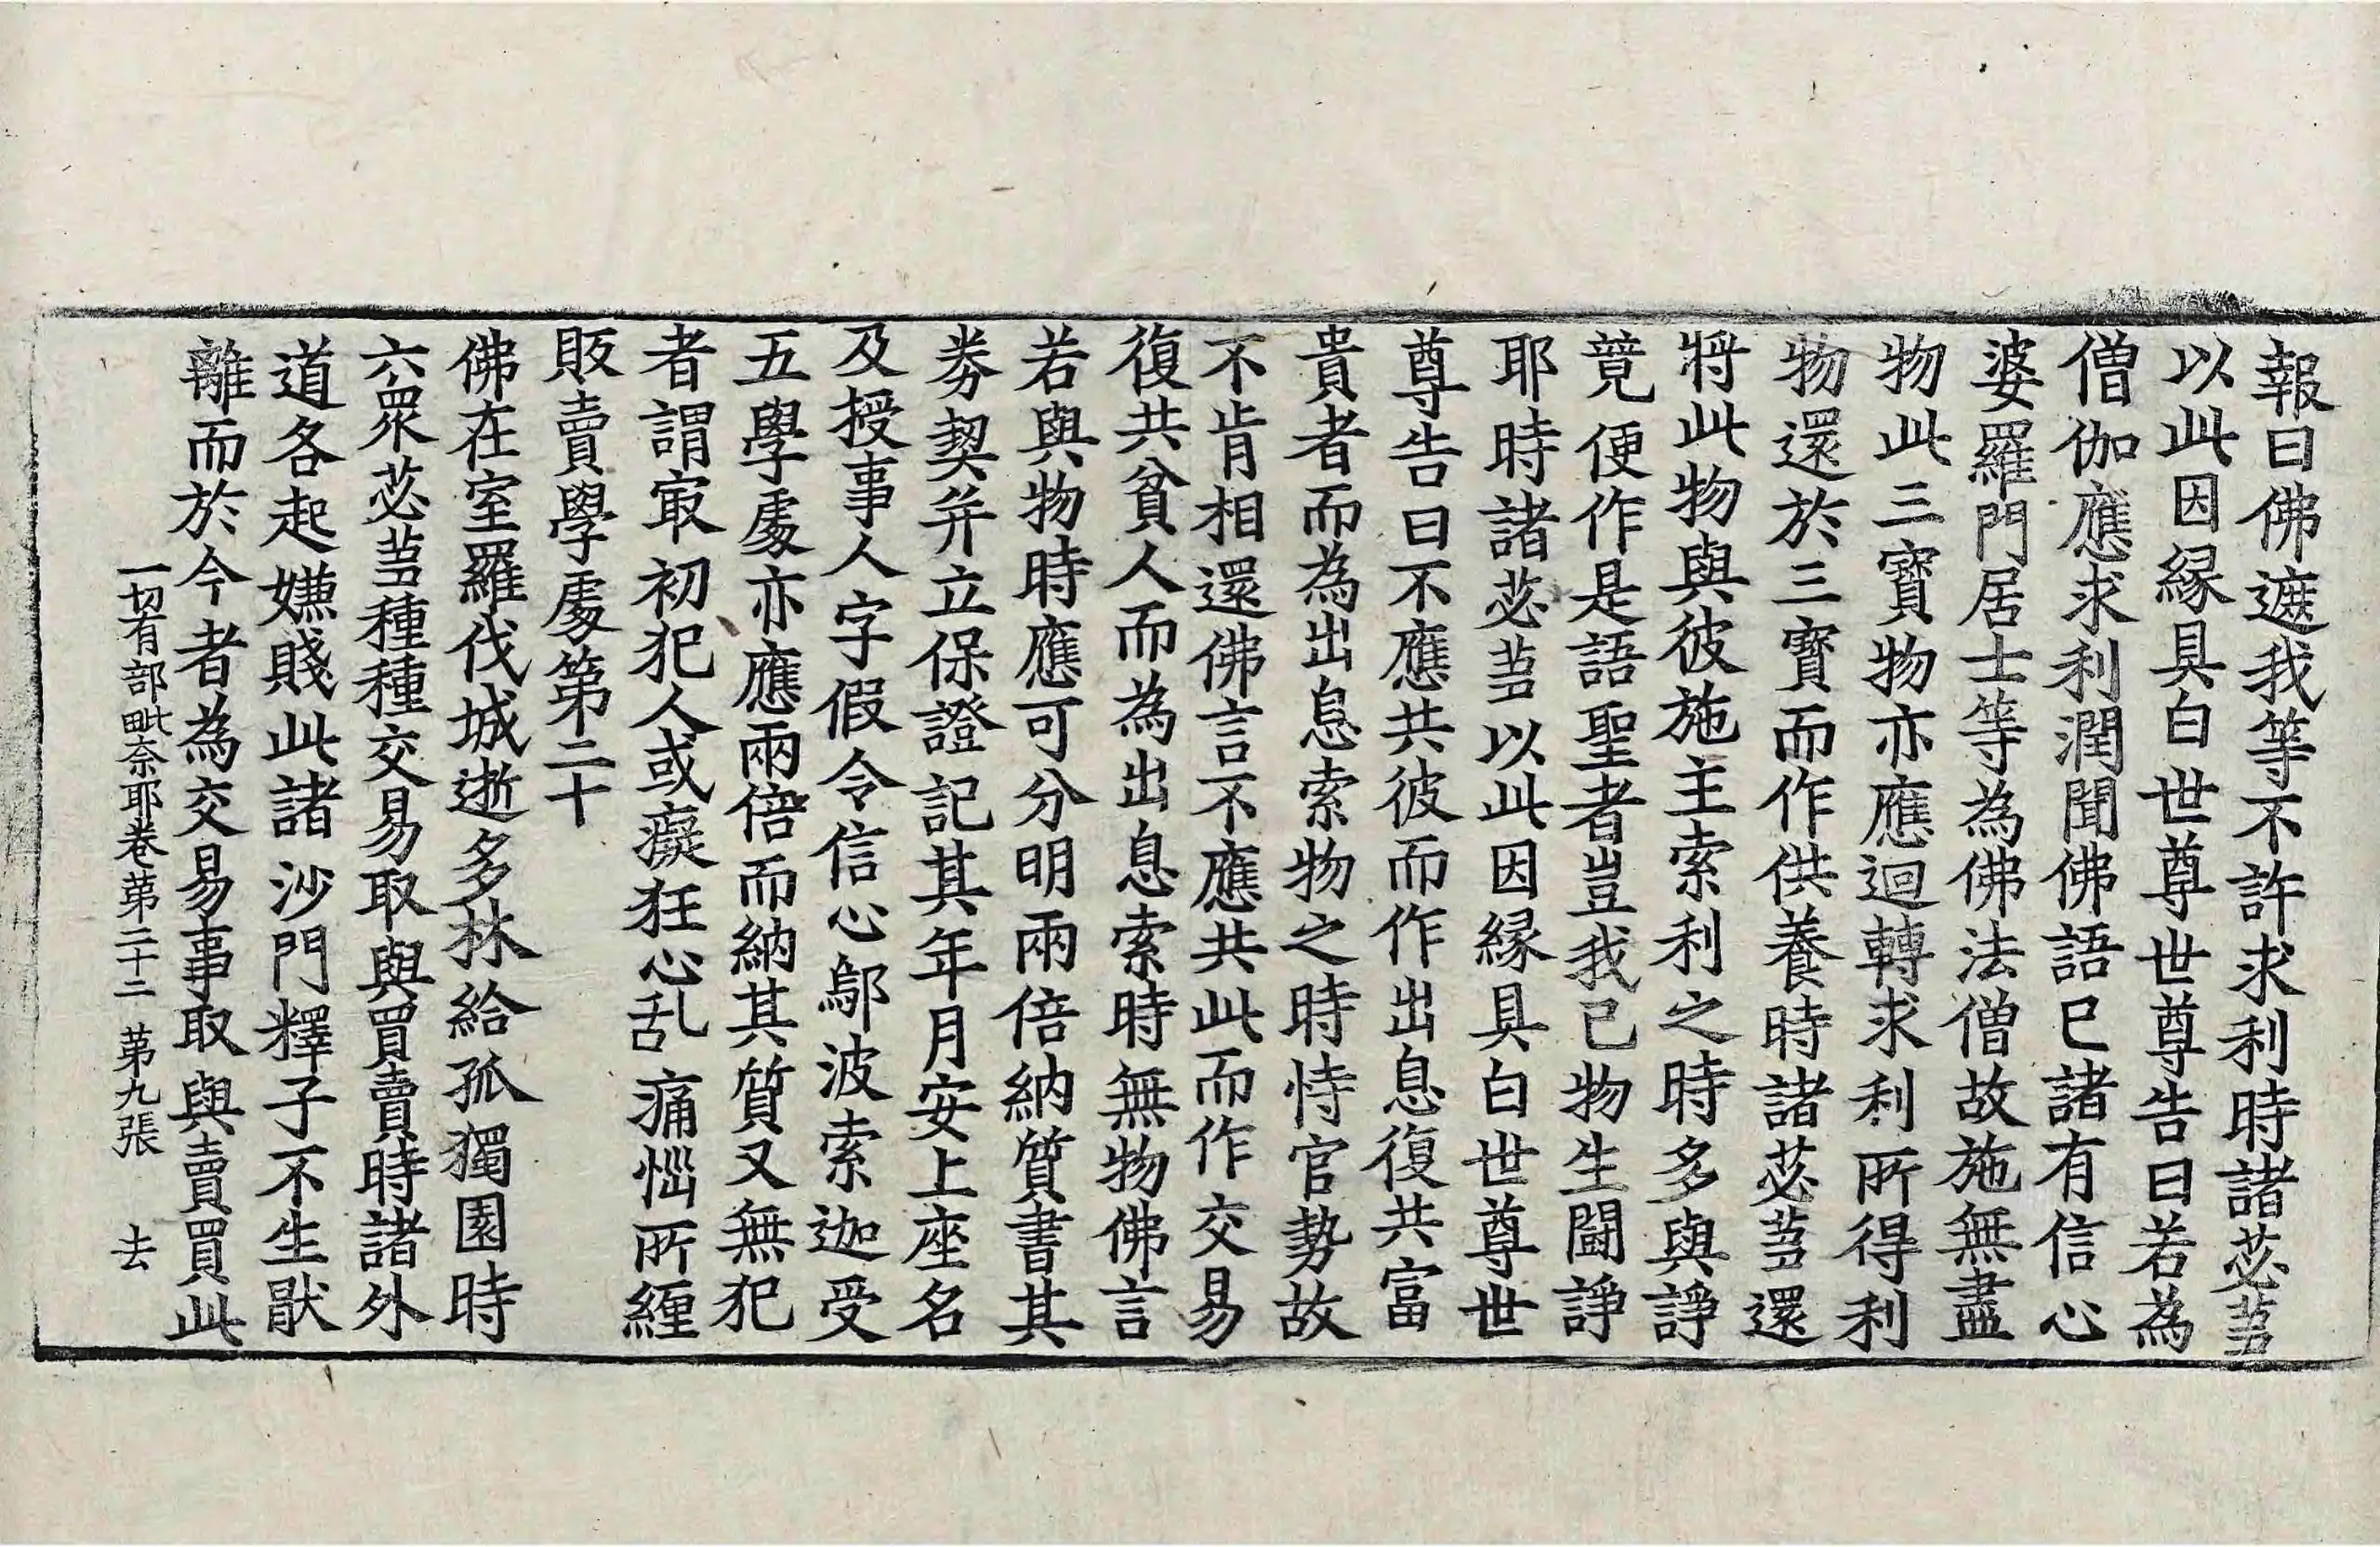 報曰佛遮我等不許求利時諸苾蒭
以此因緣具白世尊世尊告曰若為
僧伽應求利潤聞佛語已諸有信心
婆羅門居士等為佛法僧故施無盡
物此三寶物亦應迴轉求利所得利
物還於三寶而作供養時諸苾蒭還
將此物與彼施主索利之時多與諍
競便作是語聖者豈我己物生鬪諍
耶時諸苾蒭以此因緣具白世尊世
尊告曰不應共彼而作出息復共富
貴者而為出息索物之時恃官勢故
不肯相還佛言不應共此而作交易
復共貧人而為出息索時無物佛言
若與物時應可分明兩倍納質書其
券契并立保證記其年月安上座名
及授事人字假令信心鄔波索迦受
五學處亦應兩倍而納其質又無犯
者謂㝡初犯人或癡狂心乱痛惱所纏
販賣學處第二十
佛在室羅伐城逝多林給孤獨園時
六眾苾蒭種種交易取與買賣時諸外
道各起嫌賤此諸沙門釋子不生猒
離而於今者為交易事取與賣買此
一切有部毗奈耶卷第二十二 第九張 去